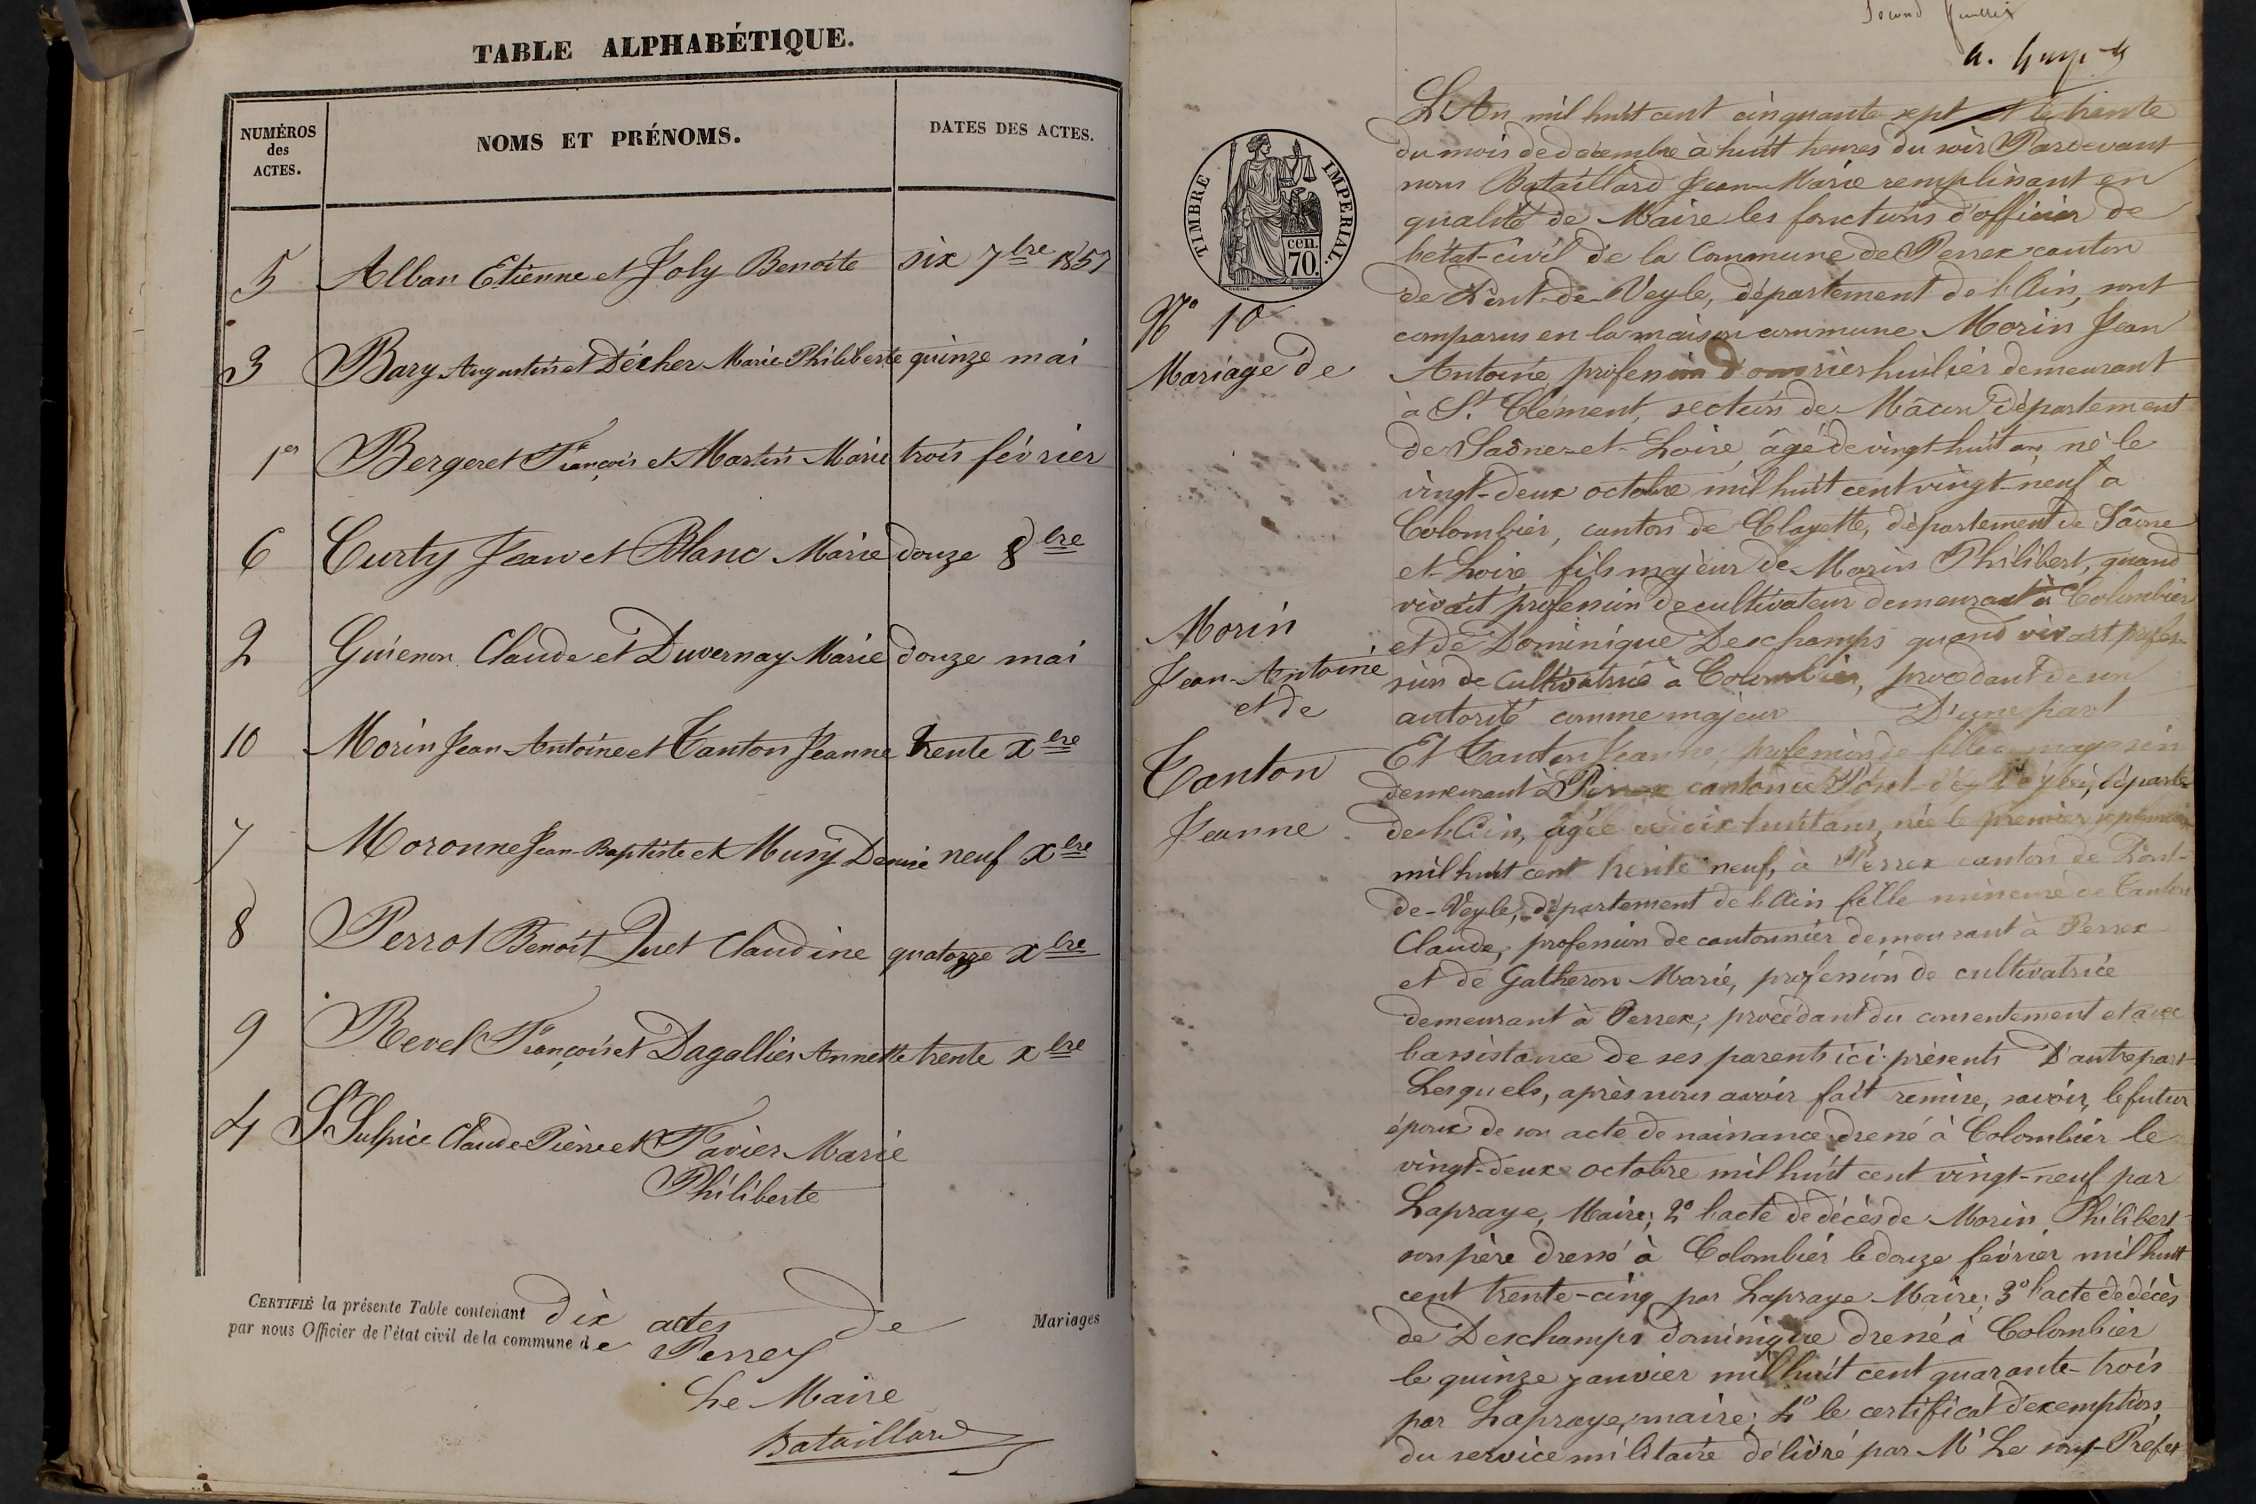 TABLE ALPHABÉTIQUE.
NUMÉROS des ACTES.
NOMS ET PRÉNOMS.
DATES DES ACTES.
5 Alban Etienne et Joly Benoite six 7bre 1857
3 Bary Augustin et Décher Marie Philiberte quinze mai
1er Bergeret François et Martin Marie trois février
6 Curty Jean et Blanc Marie douze 8bre
2 Guienon Claude et Duvernay Marie douze mai
10 Morin Jean-Antoine et Tanton Jeanne trente xbre
7 Moronne Jean-Baptiste et Musy Denise neuf xbre
8 Perrot Benoit Juet Claudine quatorze xbre
9 Revel François et Dagallier Annette trente xbre
4 St Sulpice Claude-Pierre et Favier Marie
Philiberte
CERTIFIÉ la présente Table contenant dix actes de Mariages
par nous Officier de l'état civil de la commune de Perrex
Le Maire
Bataillard
Second
TIMBRE IMPERIAL.
70 cen.
No 10
Mariage de
Morin
Jean-Antoine
et de
Tanton
Jeanne
L'An mil huit cent cinquante sept et le trente
du mois de décembre à huit heures du soir Pardevant
nous Bataillard Jean-Marie remplissant en
qualité de Maire les fonctions d'officier de
l'état-civil de la Commune de Perrex canton
de Pont-de-Veyle, département de l'Ain, sont
comparus en la maison commune Morin Jean
Antoine, profession d'ouvrier huilier demeurant
à St. Clément, section de Mâcon département
de Saône-et-Loire, âgé de vingt-huit ans, né le
vingt-deux octobre mil huit cent vingt-neuf à
Colombier, canton de Clayette, département de Saône
et-Loire fils majeur de Morin Philibert, quand
vivait profession de cultivateur demeurant à Colombier
et de Dominique Deschamps quand vivait profes-
sion de cultivatrice à Colombier, procédant de son
autorité comme majeur D'une part
Et Tanton Jeanne profession de fille magasin
demeurant à Perrex canton de Pont-de-Veyle, départ
de l'Ain, âgée de dix huit ans, née le premier septembre
mil huit cent trente neuf, à Perrex canton de Pont-
de-Veyle, département de l'Ain fille mineure de Tanton
Claude, profession de cantonnier demeurant à Perrex
et de Gatheron Marie, profession de cultivatrice
demeurant à Perrex, procédant du consentement et avec
l'assistance de ses parents ici présents D'autre part
Lesquels, après nous avoir fait remise, savoir, le futur
époux de son acte de naissance dressé à Colombier le
vingt-deux octobre mil huit cent vingt-neuf par
Lapraye, Maire; 2o l'acte de décès de Morin Philibert
son père dressé à Colombier le douze février mil huit
cent trente-cinq par Lapraye Maire; 3o l'acte de décès
de Deschamps dominique dressé à Colombier
le quinze janvier mil huit cent quarante-trois
par Lapraye, maire; 4o le certificat d'exemption
du service militaire délivré par Mr Le sous-Préfet